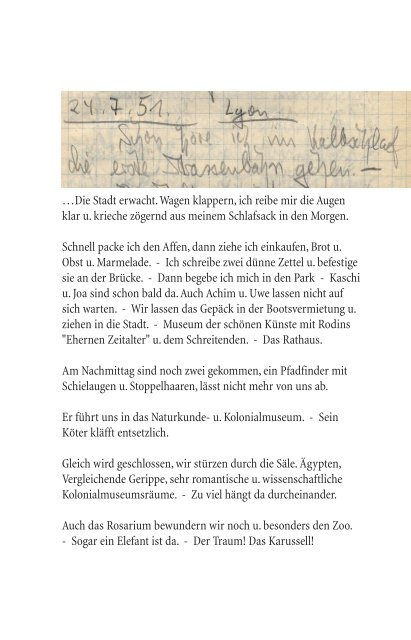 24.7.51. Lyon
Schon höre ich im Halbschlaf
die erste Strassenbahn gehen. –
…Die Stadt erwacht. Wagen klappern, ich reibe mir die Augen
klar u. krieche zögernd aus meinem Schlafsack in den Morgen.
Schnell packe ich den Affen, dann ziehe ich einkaufen, Brot u.
Obst u. Marmelade. - Ich schreibe zwei dünne Zettel u. befestige
sie an der Brücke. - Dann begebe ich mich in den Park - Kaschi
u. Joa sind schon bald da. Auch Achim u. Uwe lassen nicht auf
sich warten. - Wir lassen das Gepäck in der Bootsvermietung u.
ziehen in die Stadt. - Museum der schönen Künste mit Rodins
"Ehernen Zeitalter" u. dem Schreitenden. - Das Rathaus.
Am Nachmittag sind noch zwei gekommen, ein Pfadfinder mit
Schielaugen u. Stoppelhaaren, lässt nicht mehr von uns ab.
Er führt uns in das Naturkunde- u. Kolonialmuseum. - Sein
Köter kläfft entsetzlich.
Gleich wird geschlossen, wir stürzen durch die Säle. Ägypten,
Vergleichende Gerippe, sehr romantische u. wissenschaftliche
Kolonialmuseumsräume. - Zu viel hängt da durcheinander.
Auch das Rosarium bewundern wir noch u. besonders den Zoo.
- Sogar ein Elefant ist da. - Der Traum! Das Karussell!